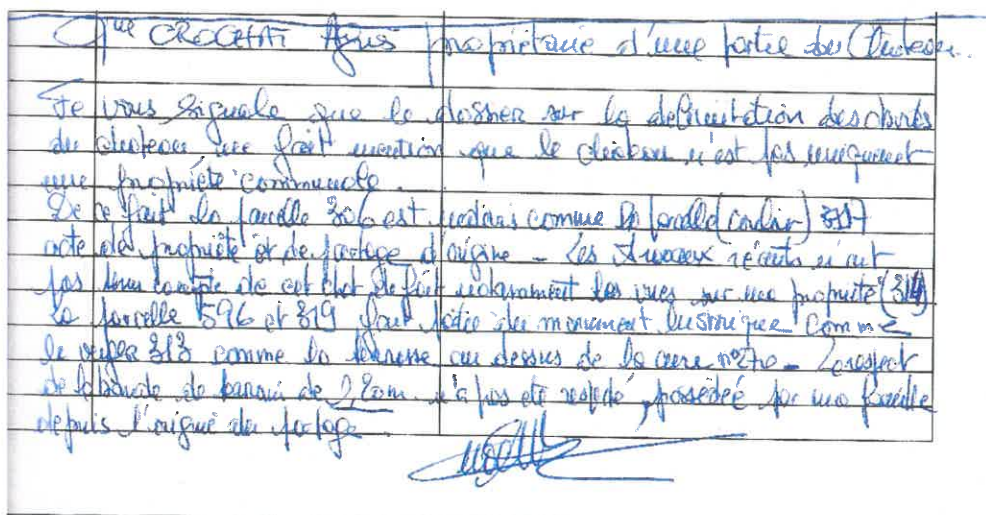 propriétaire d'une partie du Château.
Je vous signale que le dossier sur la délimitation des abords
du château ne fait mention que le château n'est pas uniquement
une propriété communale.
De ce fait la parcelle 306 est comme la parcelle 317
acte de propriété et de partage d'origine - Les travaux récents n'ont
pas tenu compte de cet état de fait notamment les vues sur ma propriété (319)
La parcelle 596 et 319 font partie du monument historique comme
le 313 comme la terrasse au dessus de la cave n° 270 - Le respect
de la bande de terrain de 2,20m n'a pas été respecté, possédée par ma famille
depuis l'origine du partage